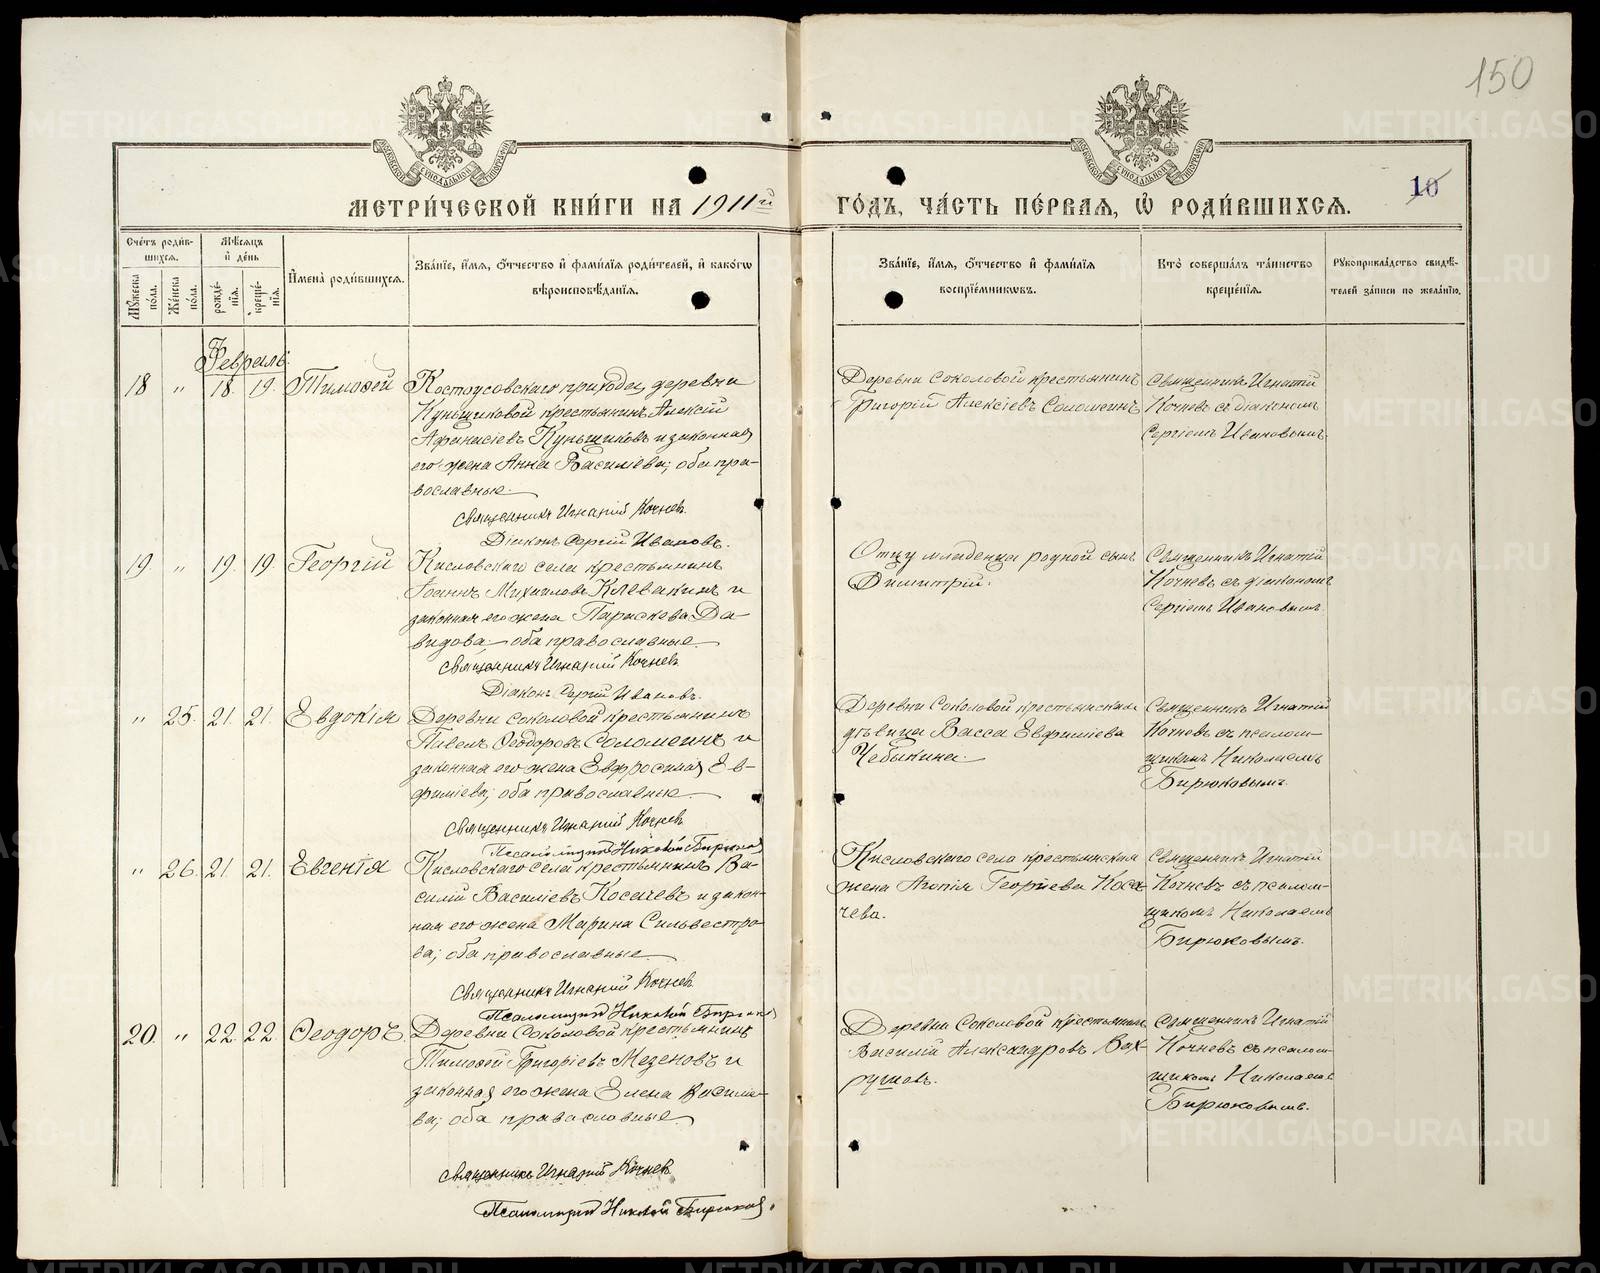 150
10
МЕТРИ́ЧЕСКОЙ КНИ́ГИ НА 1911й ГО́ДЪ, ЧА́СТЬ ПЕ́РВАЯ, Ѡ РОДИ́ВШИХСЯ.
Сче́тъ роди́в-
шихся.
Мѣ́сяцъ
и҆ де́нь
Му́жеска
по́ла.
Же́нска
по́ла.
рожде́-
нїя.
креще́-
нїя.
И҆мена̀ роди́вшихся.
Зва́нїе, и҆́мя, о҆́тчество и҆ фами́лїя роди́телей, и҆ како́гѡ
вѣроисповѣ́данїя.
Зва́нїе, и҆́мя, о҆́тчество и҆ фами́лїя
воспрїе́мниковъ.
Кто̀ соверша́лъ та́инство
креще́нїя.
Рукоприкла́дство свидѣ́-
телей за́писи по жела́нїю.
Февраль.
18 " 18. 19. Тимоѳей
Костоусовскаго прихода, деревни
Куньщиковой крестьянинъ Алексій
Аѳанасіевъ Куньщиковъ и законная
его жена Анна Василіева; оба пра-
вославные.
Священникъ Игнатій Кочневъ.
Діаконъ Сергій Ивановъ.
Деревни Соколовой крестьянинъ
Григорій Алексіевъ Соломеинъ
Священникъ Игнатій
Кочневъ съ діакономъ
Сергіемъ Ивановымъ.
19. " 19. 19. Георгій
Кисловскаго села крестьянинъ
Іоаннъ Михаиловъ Клевакинъ и
законная его жена Параскева Да-
видова; оба православные.
Священникъ Игнатій Кочневъ
Діаконъ Сергій Ивановъ.
Отцу младенца родной сынъ
Димитрій.
Священникъ Игнатій
Кочневъ съ діакономъ
Сергіемъ Ивановымъ.
" 25. 21. 21. Евдокія
Деревни Соколовой крестьянинъ
Павелъ Ѳеодоровъ Соломеинъ и
законная его жена Евфросинія Ев-
фиміева; оба православные.
Священникъ Игнатій Кочневъ
Псаломщикъ Николай Бирюковъ
Деревни Соколовой крестьянская
дѣвица Васса Евфиміева
Чебыкина.
Священникъ Игнатій
Кочневъ съ псалом-
щикомъ Николаемъ
Бирюковымъ.
" 26. 21. 21. Евгенія
Кисловскаго села крестьянинъ Ва-
силій Василіевъ Косачевъ и закон-
ная его жена Марина Сильвестро-
ва; оба православные.
Священникъ Игнатій Кочневъ
Псаломщикъ Николай Бирюковъ
Кисловскаго села крестьянская
жена Агапія Георгіева Коса-
чева.
Священникъ Игнатій
Кочневъ съ псалом-
щикомъ Николаемъ
Бирюковымъ.
20. " 22. 22. Ѳеодоръ
Деревни Соколовой крестьянинъ
Тимоѳей Григоріевъ Мезеновъ и
законная его жена Елена Василіе-
ва; оба православные.
Священникъ Игнатій Кочневъ
Псаломщикъ Николай Бирюковъ.
Деревни Соколовой крестьянинъ
Василій Александровъ Вах-
рушевъ.
Священникъ Игнатій
Кочневъ съ псалом-
щикомъ Николаемъ
Бирюковымъ.
METRIKI.GASO-URAL.RU